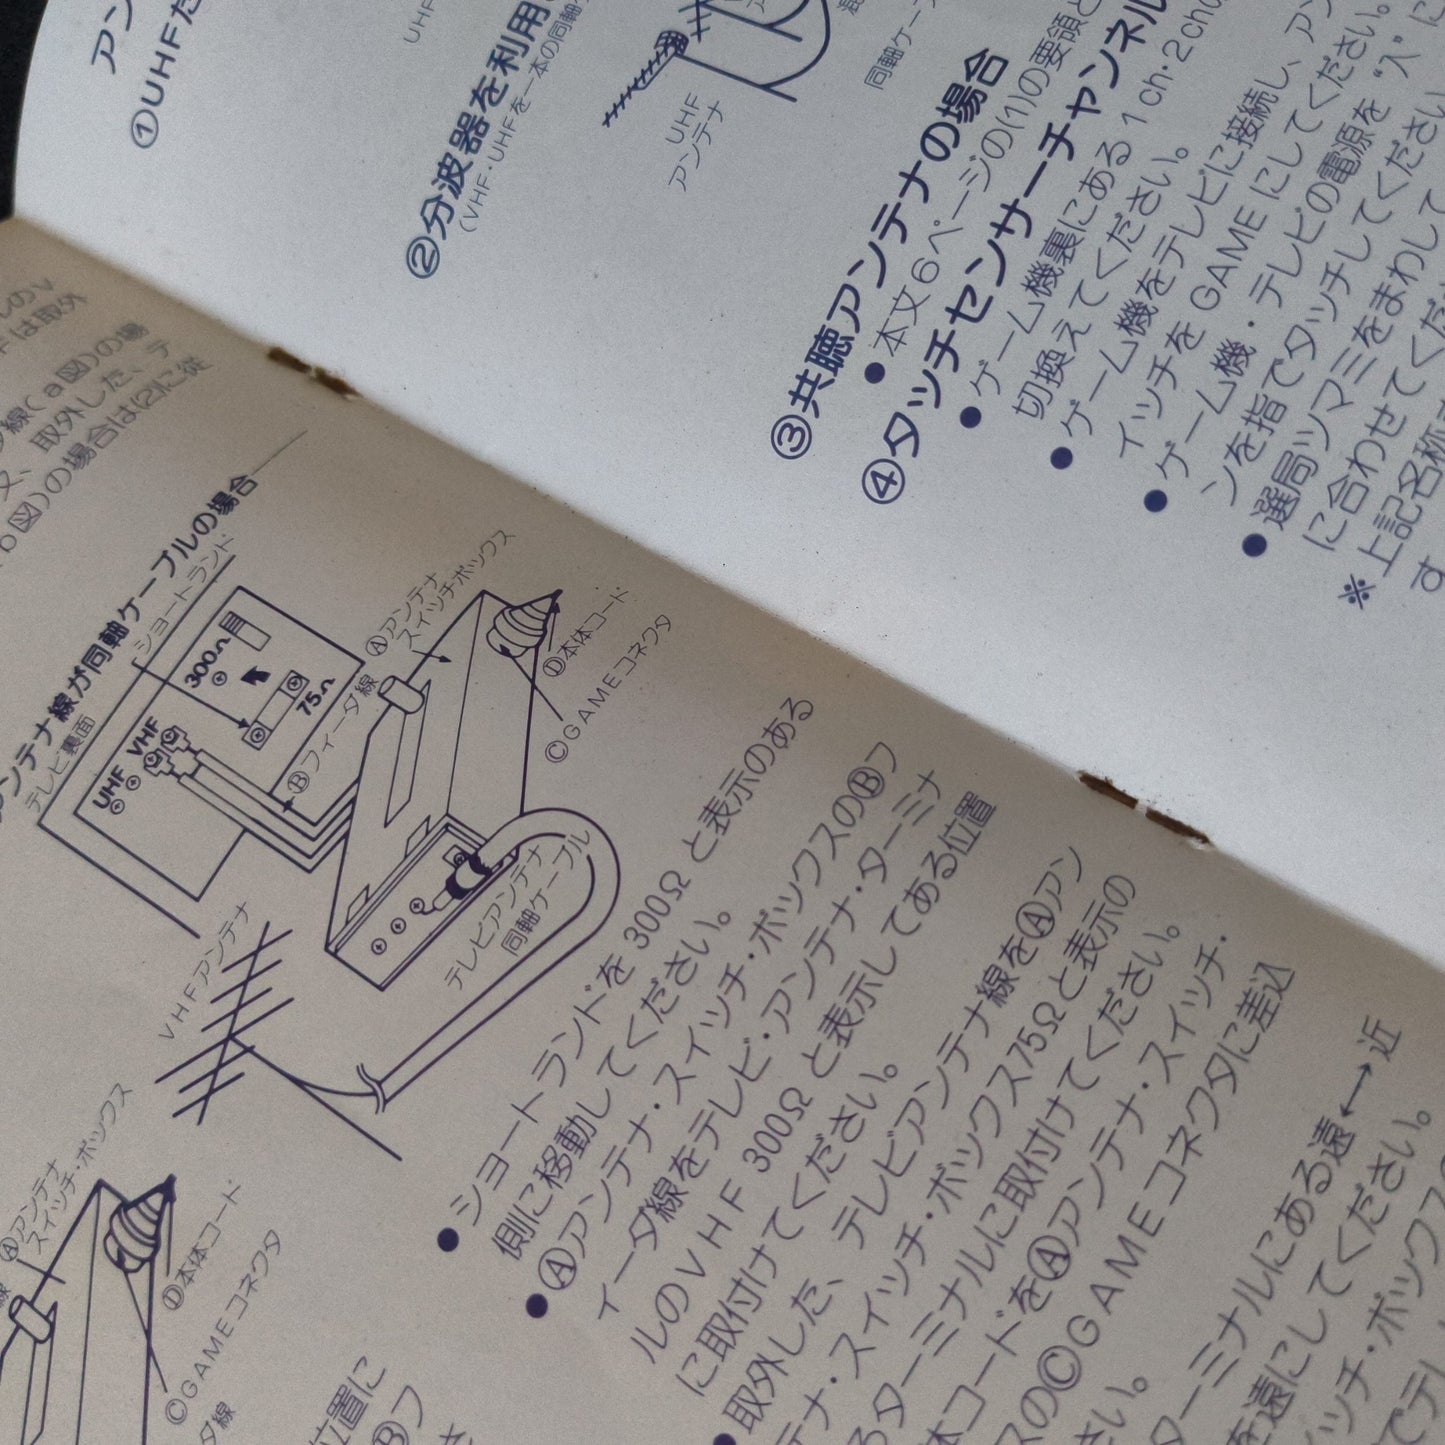 アン
①UHFた
UHF
②分波器を利用
(VHF・UHFを一本の同軸
UHF
アンテナ
同軸ケー
③共聴アンテナの場合
●本文6ページの(1)の要領と
④タッチセンサーチャンネル
●ゲーム機裏にある1ch・2ch
切換えてください。
●ゲーム機をテレビに接続し、ア
イッチをGAMEにしてください。
●ゲーム機・テレビの電源を“入”に
ンを指でタッチしてください
●選局ツマミをまわして
に合わせてくだ
※上記名称
す
しのV
Fは取外
線(a図)の場
又、取外した、テ
b図)の場合は(2)に従
ンテナ線が同軸ケーブルの場合
テレビ裏面
ショートランド
UHF VHF
300Ω
75Ω
Ⓑフィーダ線
Ⓐアンテナ
スイッチ・ボックス
Ⓓ本体コード
ⒸGAMEコネクタ
テレビアンテナ
同軸ケーブル
VHFアンテナ
●ショートランドを300Ωと表示のある
側に移動してください。
●Ⓐアンテナ・スイッチ・ボックスのⒷフ
ィーダ線をテレビ・アンテナ・ターミナ
ルのVHF 300Ωと表示してある位置
に取付けてください。
●取外した、テレビアンテナ線をⒶアン
テナ・スイッチ・ボックス75Ωと表示の
るターミナルに取付けてください。
体コードをⒶアンテナ・スイッチ・
スのⒸGAMEコネクタに差込
さい。
ターミナルにある遠↔近
を遠にしてください。
イッチ・ボックス
でテレ
Ⓐアンテナ
スイッチ・ボックス
Ⓓ本体コード
ⒸGAMEコネクタ
ダ線
位置に
Ⓑフ